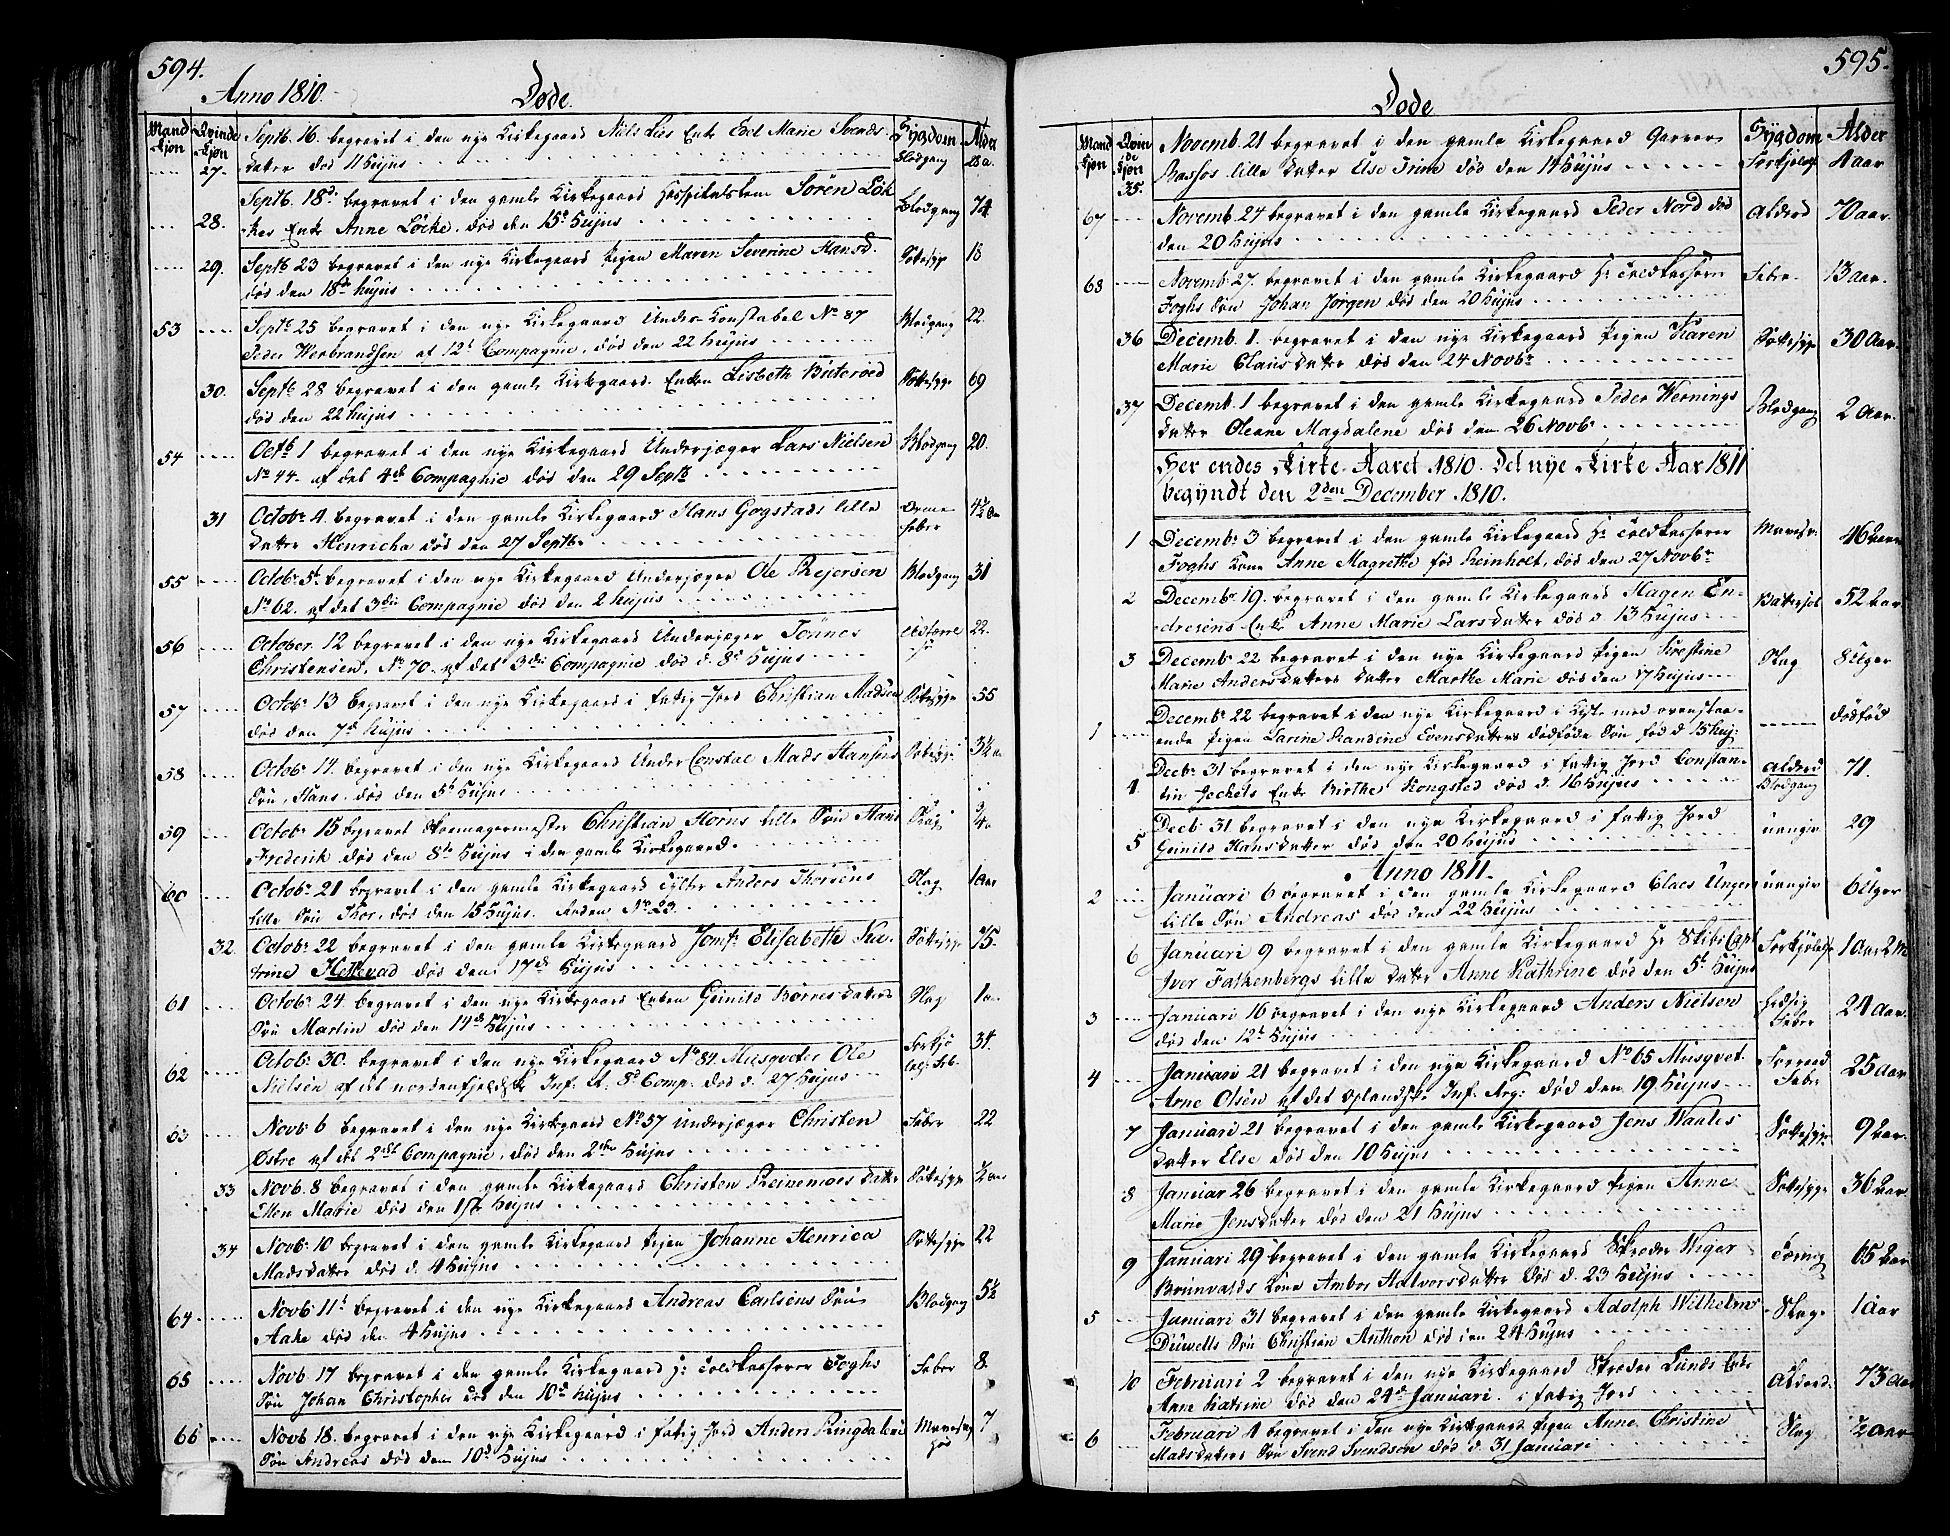 594.
Anno 1810.
Døde.
Mand Kjøn
Qvinde Kjøn
Sygdom
Alder
27. Septb. 16. begravet i den nye Kirkegaard Niels Lies Enke Marie Svends-
datter død 11 hujus Blodgang
28. Septb. 18d begravet i den gamle Kirkegaard Hospitalslem Sören Løk
kes Enke Anne Löcke, død den 15d hujus Blodgang 74
29. Septb 23 begravet i den nye Kirkegaard Pigen Maren Severine Hansd.
død den 18de hujus Sottesyge 18
53 Septb. 25 begravet i den nye Kirkegaard Under-Konstabel No 87
Peder Werbrandsen af 12t Compagnie, død den 22 hujus Blodgang 22
30. Septb. 28 begravet i den gamle Kirkegaard Enken Lisbeth Büteröed
død den 22 hujus Sottesyge 69
54 Octb 1 begravet i den nye Kirkegaard Underjæger Lars Nielsen
No 44. af det 4de Compagnie død den 29 Septb Blodgang 20.
31 Octobr. 4. begravet i den gamle Kirkegaard Hans Gogstads lille
datter Henricha død den 27 Septbr Orme-
feber 4½
55 Octobr. 5t. begravet i den nye Kirkegaard Underjæger Ole Rejersen
No 62. af det 3die Compagnie død den 2 hujus Blodgang 31
56 October. 12 begravet i den nye Kirkegaard Underjæger Tönnes
Christensen, No 70. af det 3die Compagnie død d. 8d hujus 22
57 Octobr. 13 begravet i den nye Kirkegaard i fattig-Jord Christian Madsen
død den 7de hujus Sottesyge 55
58 Octobr. 14. begravet i den nye Kirkegaard Under Constae Mads Hansens
Søn, Hans, død den 5t hujus Sottesyge 3½
59 Octobr. 15 begravet Skoemagermester Christian Horns lille Søn Hans
Frederik død den 8de hujus i den gamle Kirkegaard. Slag
60 Octobr. 21 begravet i den gamle Kirkegaard Anders Thorsens
lille Søn Thor, død den 15 hujus. No 23. Slag 1 aar
32. Octobr. 22 begravet i den gamle Kirkegaard Jomfr. Elisabeth Ka-
trine Hettevad død den 17de hujus Sottesyge 75.
61 Octobr. 24. begravet i den nye Kirkegaard Enken Gunild Börresdatters
Søn Martin død den 14de hujus Slag
62 Octobr. 30. begravet i den nye Kirkegaard No 84 Musqveter Ole
Nielsen af nordenfjeldske Inf. R. Comp. død d. 27 hujus Forkjö
34.
63 Novb. 6 begravet i den nye Kirkegaard No. 57 underjæger Christen
Østre af det 2det Compagnie, død den 2den hujus Feber 22
33 Novb. 8 begravet i den gamle Kirkegaard Christen Reinemoes datter
Ellen Marie død den 1ste hujus Sottesyge
34 Novb. 10 begravet i den gamle Kirkegaard Pigen Johanne Henrica
Madsdatter død d. 4 hujus Sottesyge 22
64. Novb. 11t begravet i den nye Kirkegaard Andreas Carlsens Søn
Aake død den 4 hujus Blodgang 5½
65 Novb 17 begravet i den gamle Kirkegaard Hr Toldkasserer Foghs
Søn Johan Christopher død den 10d hujus Feber 8.
66 Novb 18. begravet i den nye Kirkegaard i fattig Jord Anders Ringdalens
Søn Andreas død den 10d hujus 7
595.
Døde
Mand kjøn
Qvinde kjøn
Sygdom
Alder
35. Novemb. 21 begravet i den gamle Kirkegaard Garver
Basses lille datter Else Trine død den 14 hujus 4 aar
67 Novemb. 24 begravet i den gamle Kirkegaard Peder Nord død
den 20 hujus Alderd 70 aar.
68 Novemb. 27. begravet i den gamle Kirkegaard Hr Toldkasserer
Foghs Søn Johan Jörgen død den 20 hujus Feber 13 aar.
36 Decemb. 1. begravet i den nye Kirkegaard Pigen Karen
Marie Clausdatter død den 24 Novbr Sottesyge 30 Aar
37 Decemb. 1 begravet i den gamle Kirkegaard Peder Wernings
datter Oleane Magdalene død den 26 Novbr Blodgang 2 Aar.
Her endes Kirke-Aaret 1810. Det nye Kirke Aar 1811
begyndt den 2den December 1810.
1 Decembr. 3 begravet i den gamle Kirkegaard Hr Toldkasserer
Foghs Kone Anne Magrethe fød Reinholt, død den 27 Novbr 46 aar
2 Decembr. 19. begravet i den gamle Kirkegaard Hagen En-
dresens Enke Anne Marie Larsdatter død d 13 hujus 52 aar
3 Decembr. 22 begravet i den nye Kirkegaard Pigen Kirstine
Marie Andersdatters datter Marthe Marie død den 17 hujus Slag 8 Uger
1 Decembr. 22 begravet i den nye Kirkegaard i Kiste med ovenstaa-
ende Pigen Larine Randine Evensdatters dødføde Søn fød d 15 huj: dødfød
4 Decbr. 31 begravet i den nye Kirkegaard i fattig Jord Constan-
tin Jechels Enke Birthe Kongsted død d. 16 hujus Alderd
Blodgang 71.
5 Decb. 31 begravet i den nye Kirkegaard i fattig Jord
Gunild Hansdatter død den 20 hujus uangiv 29
Anno 1811.
2 Januari 6 begravet i den gamle Kirkegaard Claes Ungers
lille Søn Andreas død den 22 hujus uangiv 6 Uger
6 Januari 9 begravet i den gamle Kirkegaard Hr Skibs Capt
Iver Falkenbergs lille datter Anne Kathrine død den 5t hujus 1 Aar 2 M
3 Januari 16 begravet i den nye Kirkegaard Anders Nielsen
død den 12t hujus
Feber 24 Aar.
4 Januari 21 begravet i den nye Kirkegaard No 65 Musqvet.
Arne Olsen af det Oplandske Inf. Reg: død den 19 hujus
Feber 25 Aar
7 Januari 21 begravet i den gamle Kirkegaard Jens Waales
datter Else død den 10 hujus Sottesyge 9 aar.
8 Januar 26 begravet i den gamle Kirkegaard Pigen Anne
Marie Jensdatter død den 21 hujus Sottesyge 36 aar.
9 Januari 29 begravet i den gamle Kirkegaard Skræder Wiger
Brunvalds Kone Ambor Halvorsdatter død d. 23 hujus Tæring 65 aar
5 Januari 31 begravet i den gamle Kirkegaard Adolph Wilhelms
Düwells Søn Christian Anthon død den 24 hujus Slag 1 aar
10 Februari 2 begravet i den nye Kirkegaard Skræder Lunds Enke
Ane Katrine død den 24de Januari. i fattig Jord Alderd. 73 aar
6 Februari 4 begravet i den nye Kirkegaard Pigen Anne Christine
Madsdatters Søn Svend Svendsen død d. 31 Januari Slag ½ aar